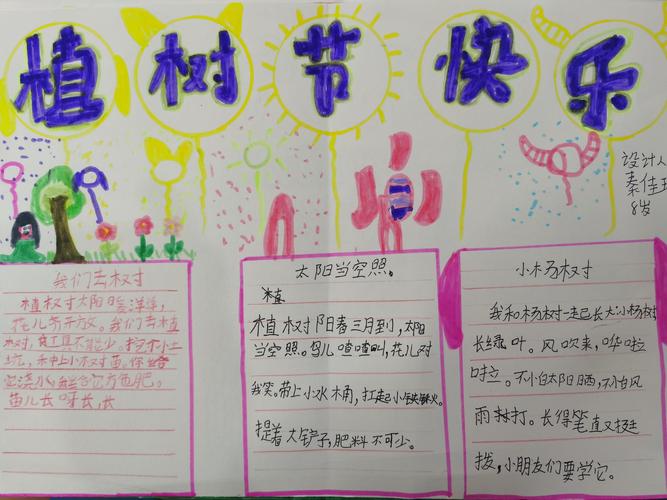 植树节快乐
设计人
秦佳
8岁
我们去树
植树时太阳暖洋洋,
花儿齐开放。我们去植
树,工具不能少。挖个小土
坑,种上小树苗。你给
它浇水,我给它施肥。
苗儿长呀长,长
太阳当空照。
植
植树阳春三月到,太阳
当空照。鸟儿喳喳叫,花儿对
我笑。带上小水桶,扛起小铁锹。
提着大铲子,肥料不可少。
小杨树
我和杨树一起长大,小杨树
长绿叶。风吹来,哗啦
啦。不怕太阳晒,不怕风
雨打。长得笔直又挺
拔,小朋友们要学它。